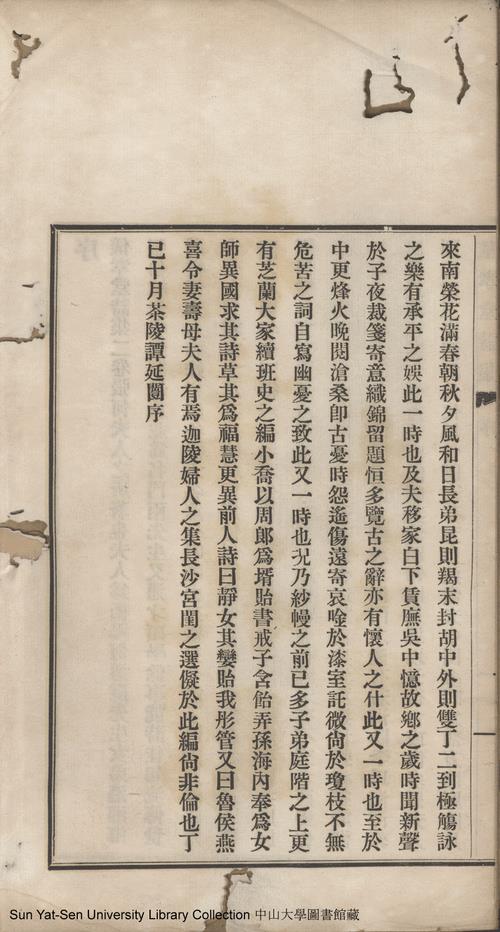 來南榮花滿春朝秋夕風和日長弟昆則羯末封胡中外則雙丁二到極觴詠
之樂有承平之娛此一時也及夫移家白下賃廡吳中憶故鄉之歲時聞新聲
於子夜裁箋寄意織錦留題恒多覽古之辭亦有懷人之什此又一時也至於
中更烽火晚閱滄桑卽古憂時怨遙傷遠寄哀唫於漆室託微尙於瓊枝不無
危苦之詞自寫幽憂之致此又一時也況乃紗幔之前已多子弟庭階之上更
有芝蘭大家續班史之編小喬以周郞爲壻貽書戒子含飴弄孫海內奉爲女
師異國求其詩草其爲福慧更異前人詩曰靜女其孌貽我彤管又曰魯侯燕
喜令妻壽母夫人有焉迦陵婦人之集長沙宮閨之選儗於此編尙非倫也丁
巳十月茶陵譚延闓序
Sun Yat-Sen University Library Collection 中山大學圖書館藏